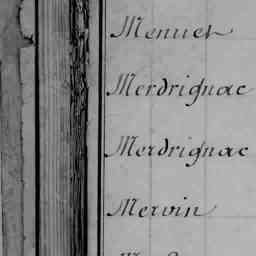 Menuet
Merdrignac
Merdrignac
Mervin